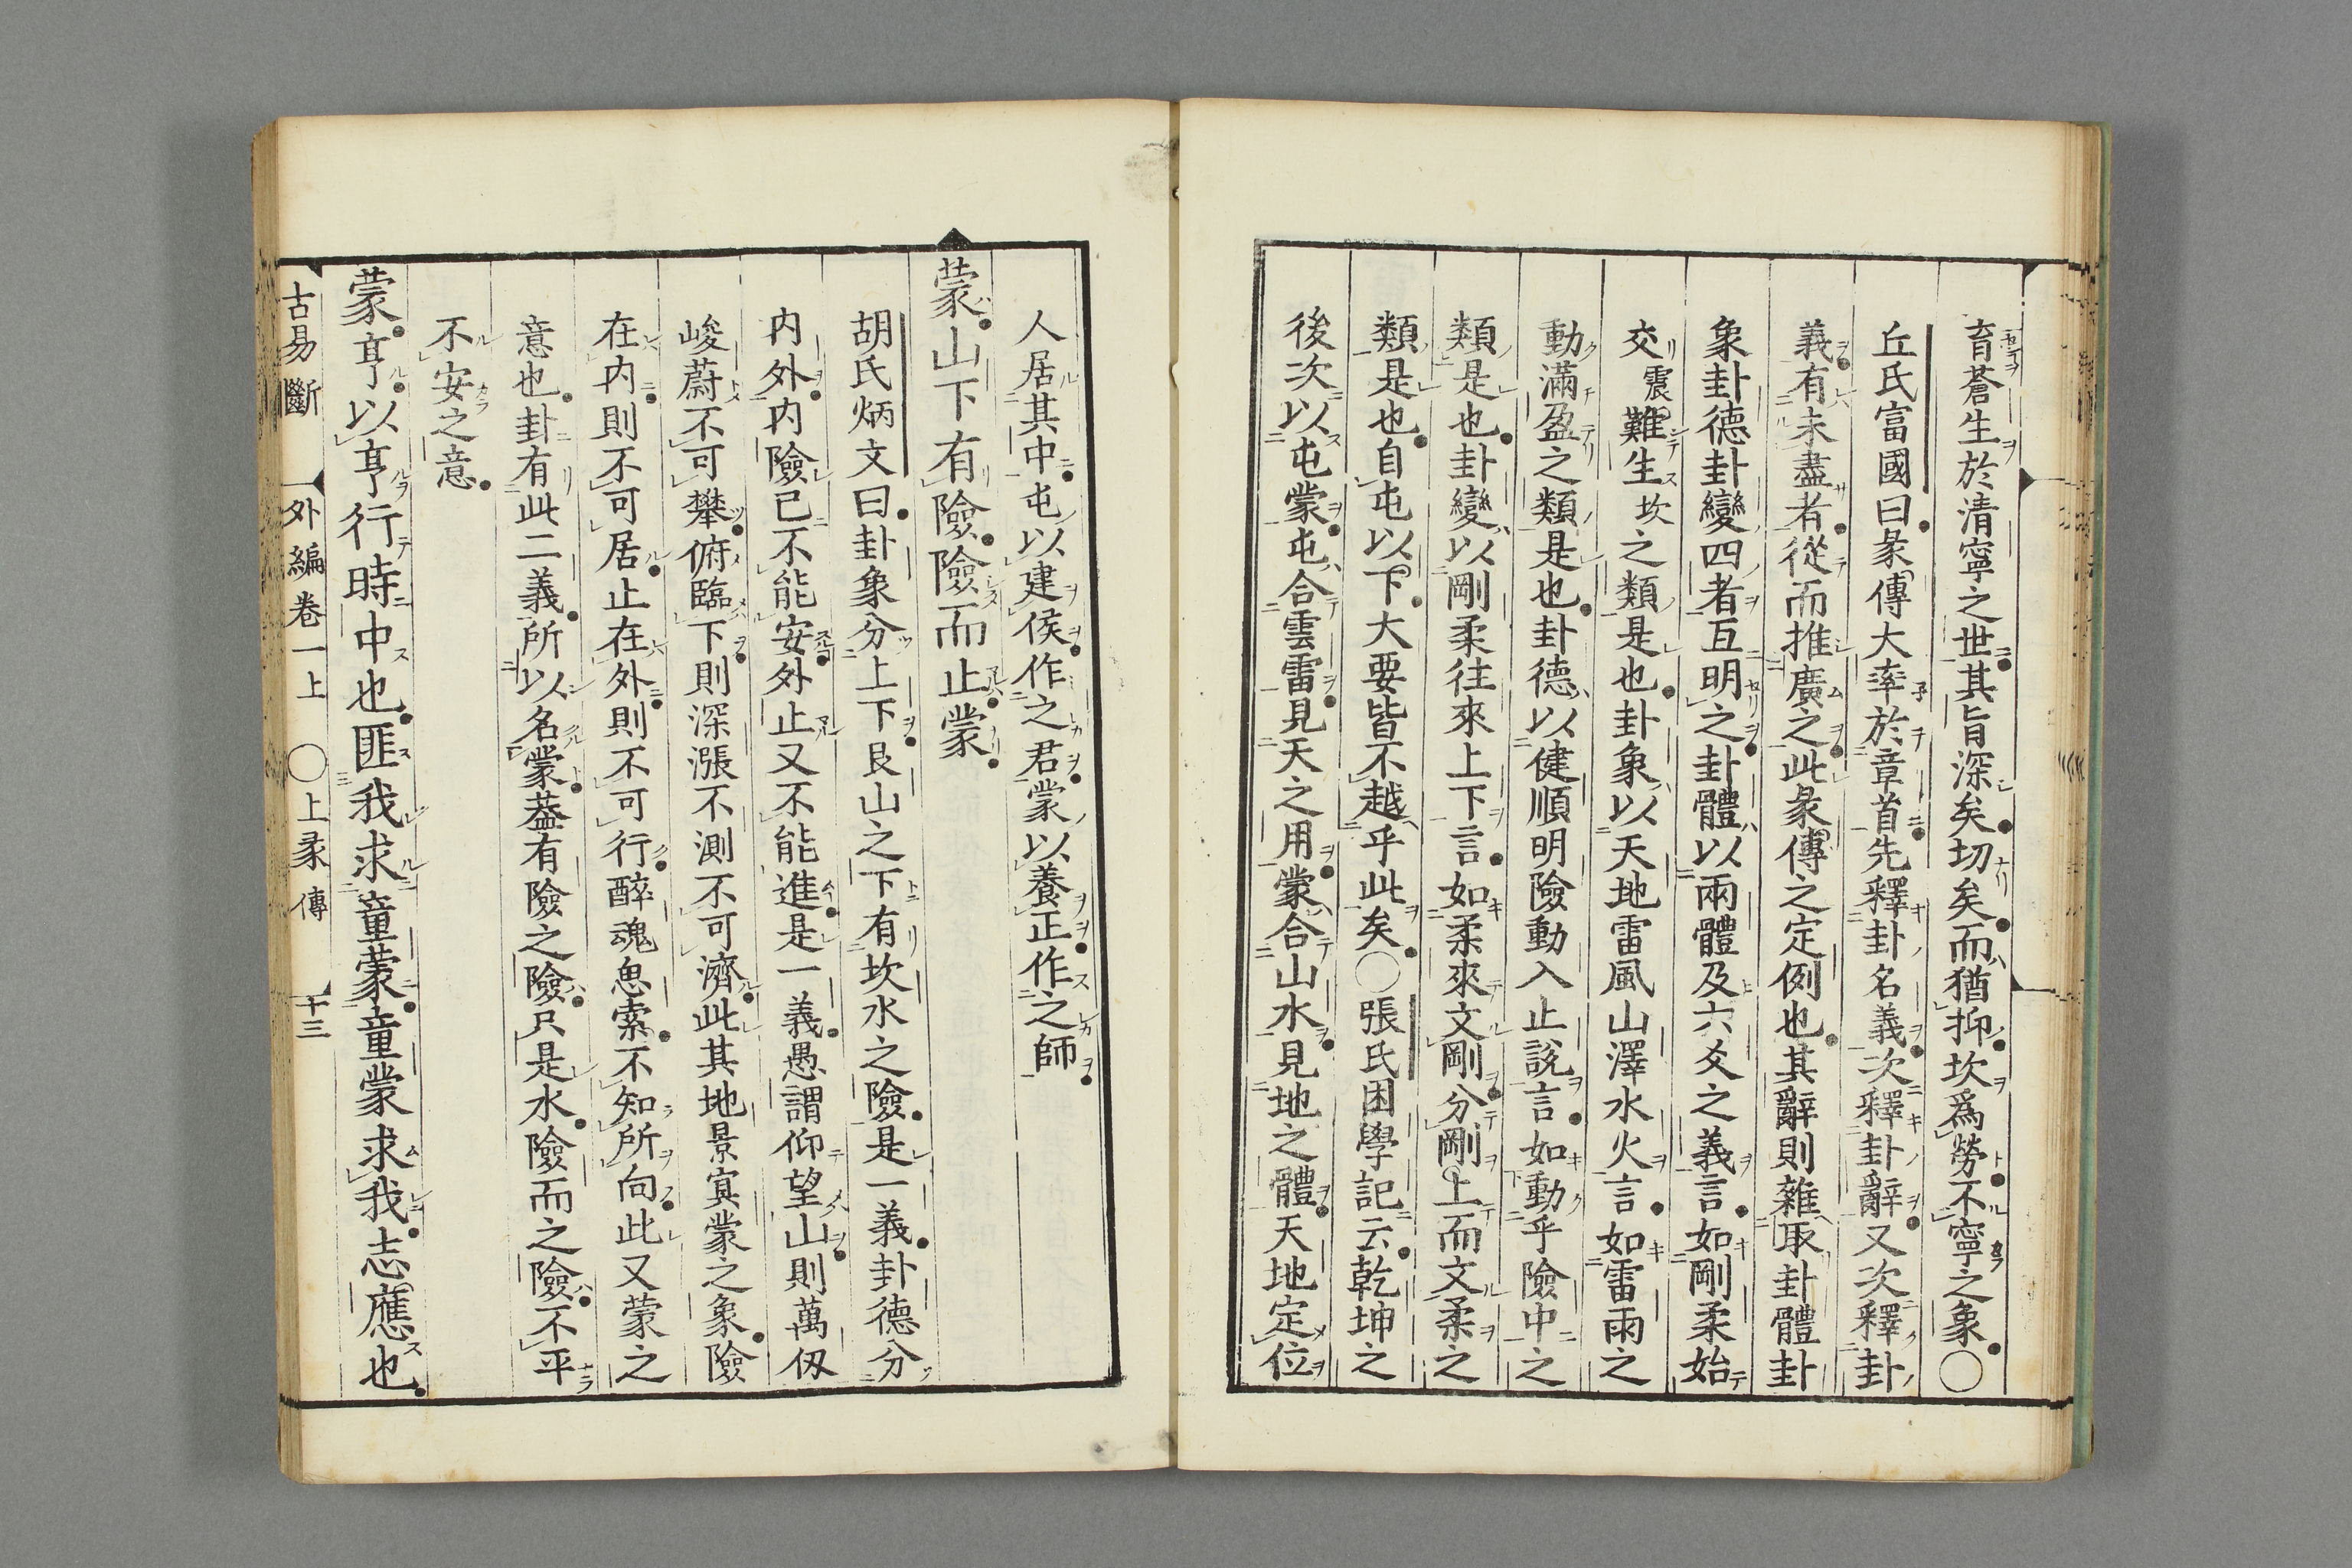 育蒼生於清寧之世其旨深矣切矣而猶抑坎爲勞不寧之象○
丘氏富國曰彖傳大率於章首先釋卦名義次釋卦辭又次釋卦
義有未盡者從而推廣之此彖傳之定例也其辭則雜取卦體卦
象卦德卦變四者互明之卦體以兩體及六爻之義言如剛柔始
交震難生坎之類是也卦象以天地雷風山澤水火言如雷雨之
動滿盈之類是也卦德以健順明險動入止說言如動乎險中之
類是也卦變以剛柔往來上下言如柔來文剛分剛上而文柔之
類是也自屯以下大要皆不越乎此矣○張氏困學記云乾坤之
後次以屯蒙屯合雲雷見天之用蒙合山水見地之體天地定位
人居其中屯以建侯作之君蒙以養正作之師
蒙山下有險險而止蒙
胡氏炳文曰卦象分上下艮山之下有坎水之險是一義卦德分
内外内險已不能安外止又不能進是一義愚謂仰望山則萬仭
峻蔚不可攀俯臨下則深漲不測不可濟此其地景寘蒙之象險
在内則不可居止在外則不可行醉魂䰟索不知所向此又蒙之
意也卦有此二義所以名蒙葢有險之險只是水險而之險不平
不安之意
蒙亨以亨行時中也匪我求童蒙童蒙求我志應也
古易斷 外編卷一上 ○上彖傳 十三